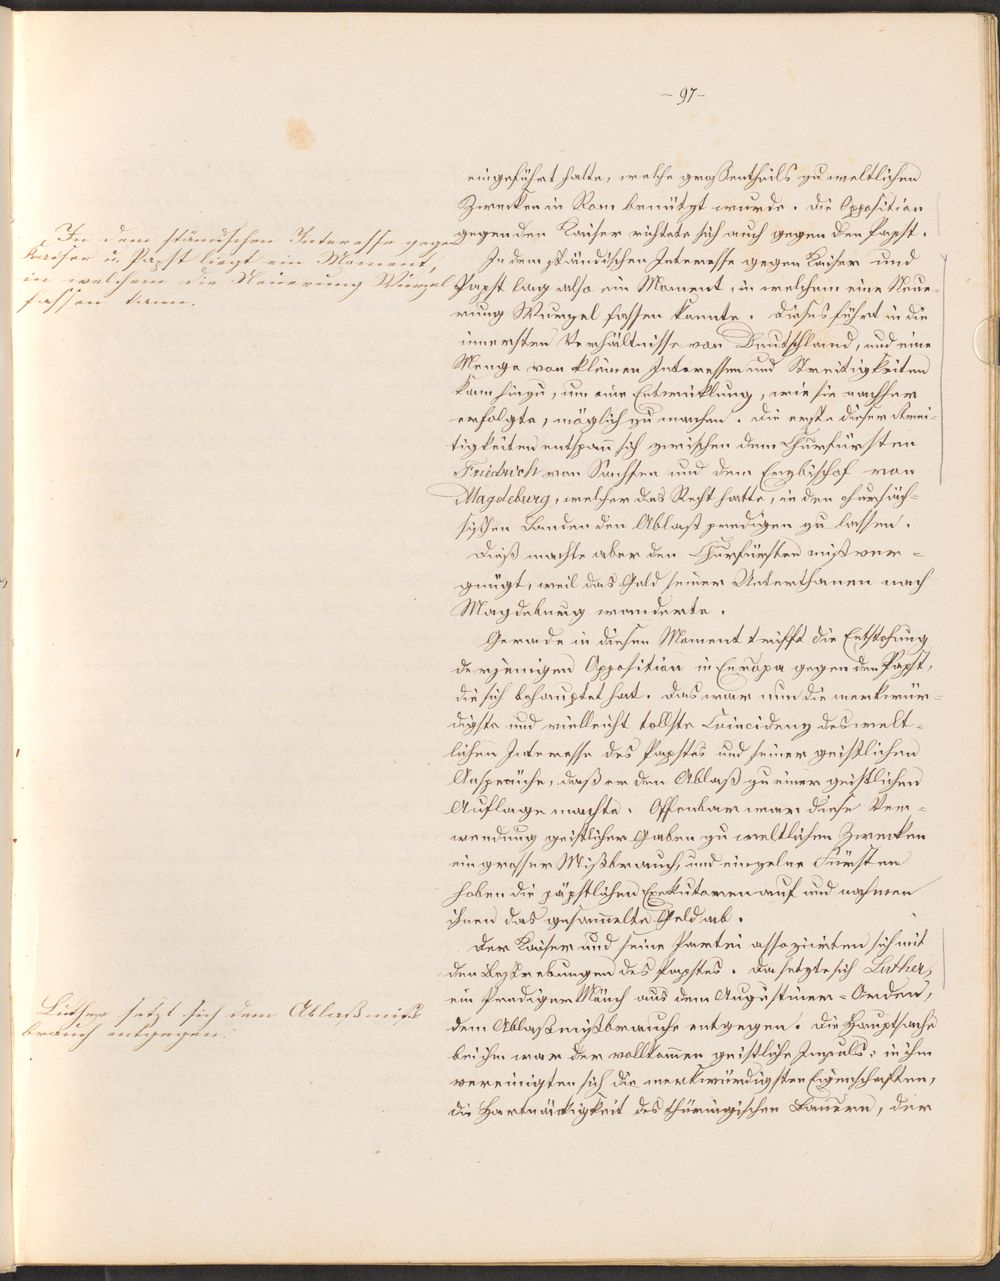 – 97 –
eingeführt hatte, welche großentheils zu weltlichen
Zwecken in Rom benützt wurde. Die Opposition
gegen den Kaiser richtete sich auch gegen den Papst.
In dem ständischen Interesse gegen
Kaiser u. Papst liegt ein Moment,
in welchem die Neuerung Wurzel
fassen kann.
In dem ständischen Interesse gegen Kaiser und
Papst lag also ein Moment in welchem eine Neue-
rung Wurzel fassen konnte. Dieses führt in die
innersten Verhältnisse von Deutschland, und eine
Menge von kleinen Interessen und Streitigkeiten
kam hinzu, um eine Entwicklung, wie sie nachher
erfolgte, möglich zu machen. Die erste dieser Strei-
tigkeiten entspann sich zwischen dem Churfürsten
Friedrich von Sachsen und dem Erzbischof von
Magdeburg, welcher das Recht hatte, in den chursäch-
sischen Landen den Ablaß predigen zu lassen.
Dieß machte aber den Churfürsten mißver-
gnügt, weil das Geld seiner Unterthanen nach
Magdeburg wanderte.
Gerade in diesen Moment trifft die Entstehung
derjenigen Opposition in Europa gegen den Papst,
die sich behauptet hat. Das war nun die merkwür-
digste und vielleicht tollste Coincidenz des welt-
lichen Interesse des Papstes und seiner geistlichen
Ansprüche, daß er den Ablaß zu einer geistlichen
Auflage machte. Offenbar war diese Ver-
wendung geistlicher Gaben zu weltlichen Zwecken
ein grosser Mißbrauch, und einzelne Fürsten
hoben die päpstlichen Exekutoren auf und nahmen
ihnen das gesammelte Geld ab.
Der Kaiser und seine Partei assozirten sich mit
den Bestrebungen des Papstes. Da setzte sich Luther,
ein Prediger Mönch aus dem Augustiner-Orden,
dem Ablaßmißbrauche entgegen. Die Hauptsache
bei ihm war der vollkommen geistliche Impuls; in ihm
vereinigten sich die merkwürdigsten Eigenschaften,
die Hartnäckigkeit des thüringischen Bauern, der
Luther setzt sich dem Ablaßmiß
brauch entgegen.